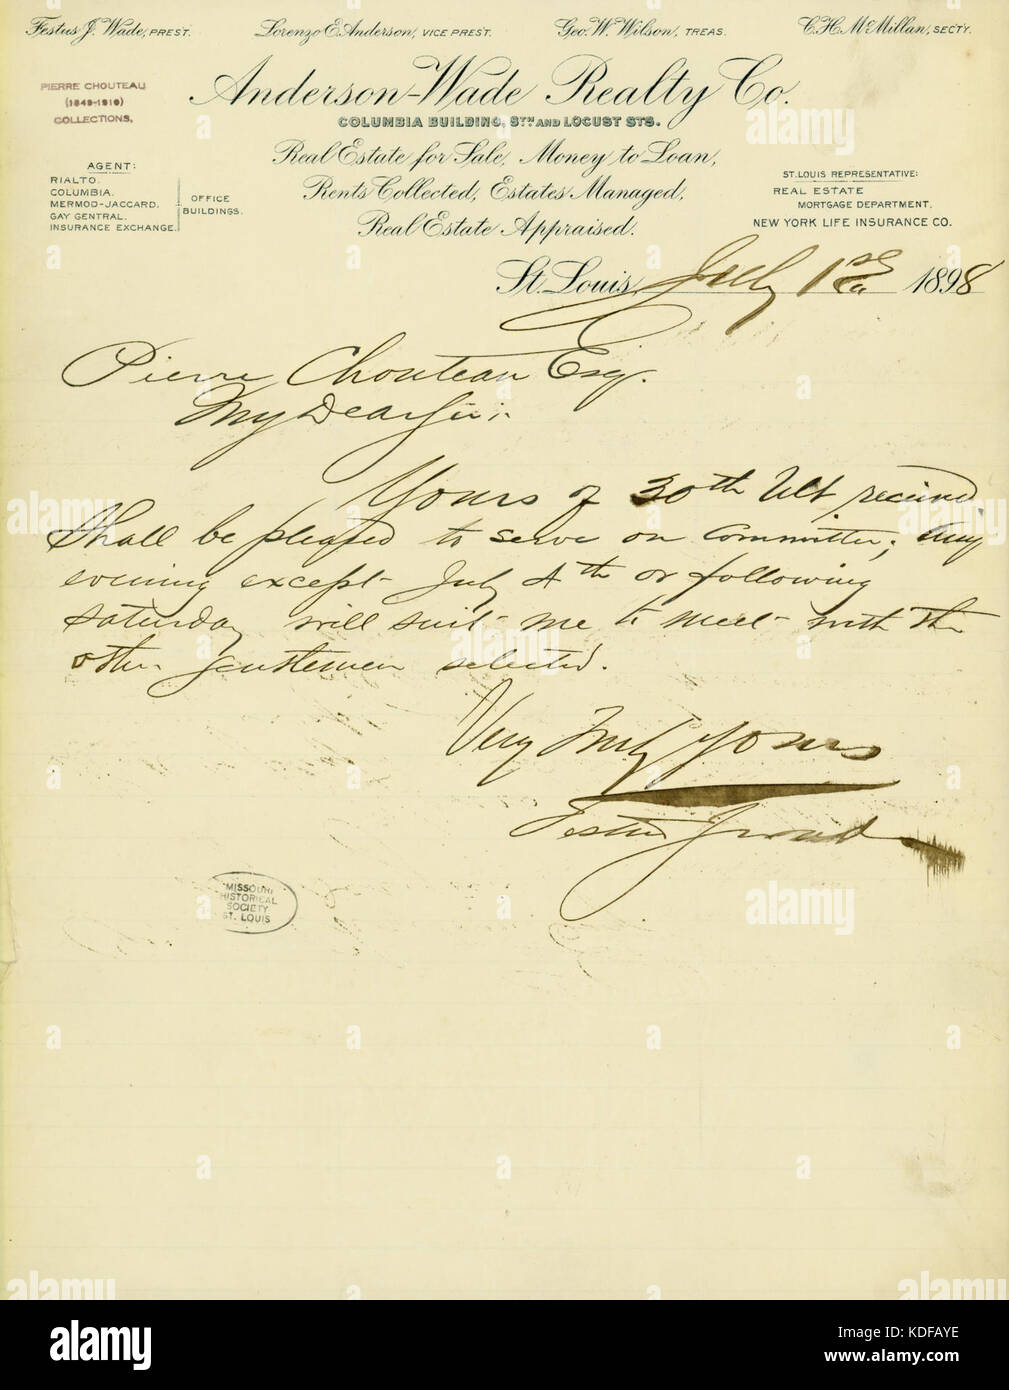 Festus J. Wade, PREST.
Lorenzo E. Anderson, VICE PREST.
Geo. W. Wilson, TREAS.
C. H. McMillan, SECTY.
PIERRE CHOUTEAU
(1849-1910)
COLLECTIONS.
Anderson-Wade Realty Co.
COLUMBIA BUILDING, 8TH AND LOCUST STS.
Real Estate for Sale, Money to Loan,
Rents Collected, Estates Managed,
Real Estate Appraised.
AGENT:
RIALTO.
COLUMBIA.
MERMOD-JACCARD.
GAY CENTRAL.
INSURANCE EXCHANGE.
OFFICE
BUILDINGS.
ST. LOUIS REPRESENTATIVE:
REAL ESTATE
MORTGAGE DEPARTMENT.
NEW YORK LIFE INSURANCE CO.
St. Louis, July 1st 1898
Pierre Chouteau Esq.
My Dear Sir:
Yours of 30th Ult received
Shall be pleased to serve on committee; any
evening except July 4th or following
Saturday will suit me to meet with the
other gentlemen selected.
Very Truly Yours
Festus J Wade
MISSOURI
HISTORICAL
SOCIETY
ST. LOUIS
alamy
alamy
Image ID: KDFAYE
www.alamy.com